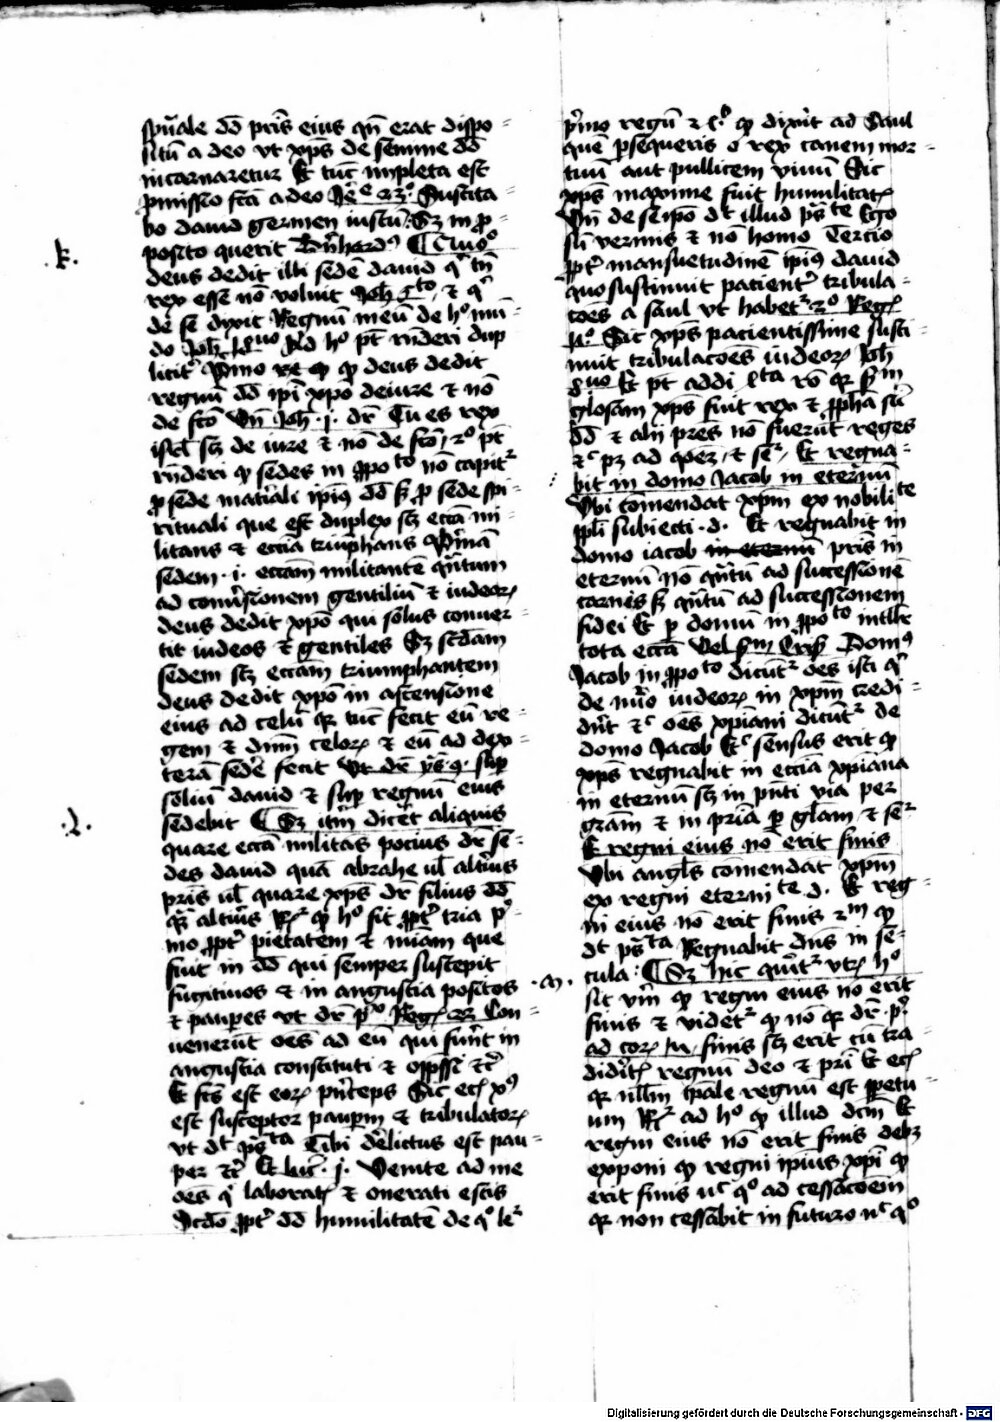 spūale dd pris eius qn erat dispo
situ a deo vt xps de semine dd
incarnaretur Et tuc impleta est
pmissio fca a deo Je 23 Suscita
bo dauid germen iustu Sz in p
posito querit Bnhard
deus dedit illi sede dauid q tn
rex esse no voluit Joh 6to et q
de se dixit Regnu meu de ho mu
do Joh Ad ho pt rnderi dup
licit Primo q deus dedit
regnu dd ipi xpo de iure et no
de fco Vn Joh i dr Tu es rex
isrl sz de iure et no de fco 2o pt
rnderi q sedes in ppoto no capit
p sede mat'iali ipius dd sz p sede spi
rituali que est duplex sz ecca mi
litans et eccia triuphans Prima
sedem i eccam militante qntum
ad conuersionem gentiliu et iudeor
deus dedit xpo qui solus conuer
tit iudeos et gentiles Sz scdam
sedem scz eccam triumphantem
deus dedit xpo in ascensione
eius ad celu qr tuc fecit eu re
gem et dnm celor et eu ad dex
tera sede fecit Vt dr ys 9 sup
soliu dauid et sup regnu eius
sedebit Sz itm dicet aliquis
quare ecca militas pocius dr se
des dauid qua abrahe ul altius
pris ul quare xps dr filius dd
qr altius Rr q ho sit ppt tria p
mo ppt pietatem et miam que
fuit in dd qui semper suscepit
fugitiuos et in angustia positos
et paupes vt dr po Reg 22 Con
uenerut oes ad eu qui sunt in
angustia constituti et oppssi etc
Et fcs est eor princeps Sic ecia xs
est susceptor paupm et tribulator
vt dt psta Tibi delictus est pau
per etc Et luc i Venite ad me
oes q laborat et onerati estis
Scdo ppt dd humilitate de qo lr
pmo regu 24 q dixit ad Saul
que psequeris o rex canem mor
tuu aut pullicem viuu Sic
xps maxime fuit humilitat
Vn de seipo dt illud pste Ego
su vermis et no homo Tercio
ppt mansuetudine ipius dauid
quo sustinuit pacient tribula
coes a saul vt habet 2o Reg
Sic xps pacientissime susti
nuit tribulacoes iudeor Joh
Et pt addi 4ta ro qr sm
glosam xps fuit rex et ppha sic
dd et alij pres no fuerut reges
etc pz ad ppoz et se Et regna
bit in domo Jacob in eternu
Vbi comendat xpm ex nobilite
ppli subiecti d Et regnabit in
domo iacob in eternu pris in
eternu no qntu ad successione
carnis sz qntu ad successionem
fidei Et p domu in ppoto intllr
tota ecca Vel sm Cris Dom9
Jacob in ppoto dicut oes isti q
de nuo iudeor in xpm credi
dut etc oes xpiani dicut de
domo Jacob Et sensus erit q
xps regnabit in eccia xpiana
in eternu sz in pnti via per
gram et in pria p glam et se
Et regni eius no erit finis
Vbi angls comendat xpm
ex regni eternite d Et reg
ni eius no erit finis 2m q
dt psta Regnabit dns in se
cula Sz hic querit vtr ho
sit vm q regni eius no erit
finis et videt q no qr dr p
ad cor finis scz erit cu tra
didit regnu deo et pri Et ec
qr nllm tpale regnu est ppetu
um Rr ad ho q illud dcm Et
regni eius no erit finis debz
exponi q regni ipius xpi q
erit finis nc qo ad cessacoem
qr non cessabit in futuro nc qo
Digitalisierung gefördert durch die Deutsche Forschungsgemeinschaft - DFG